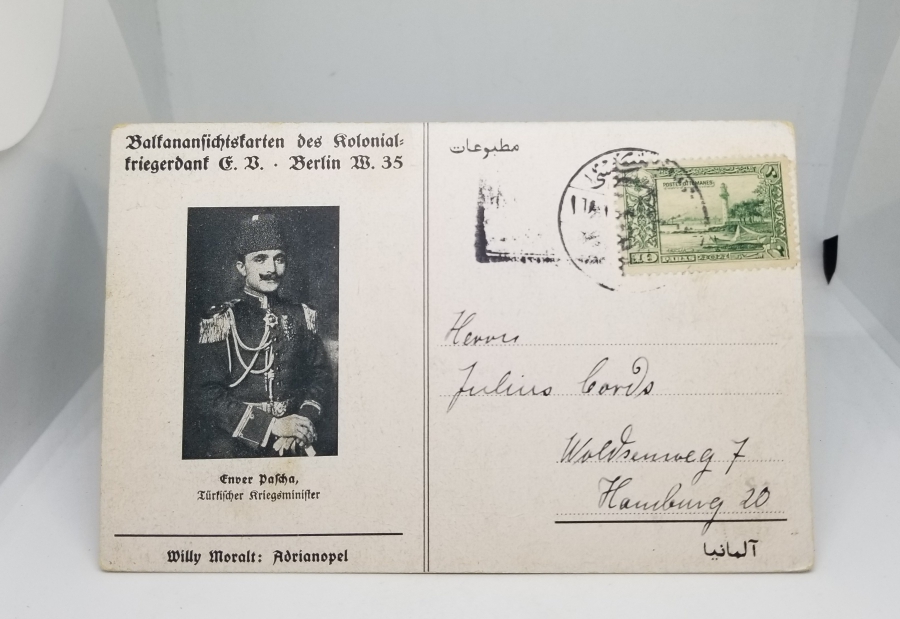 Balkanansichtskarten des Kolonial-
kriegerdank E. V. · Berlin W. 35
Enver Pascha,
Türkischer Kriegsminister
Willy Moralt: Adrianopel
مطبوعات
POSTES OTTOMANES
10 PARAS
Herrn
Julius Cords
Woldsenweg 7
Hamburg 20
آلمانيا